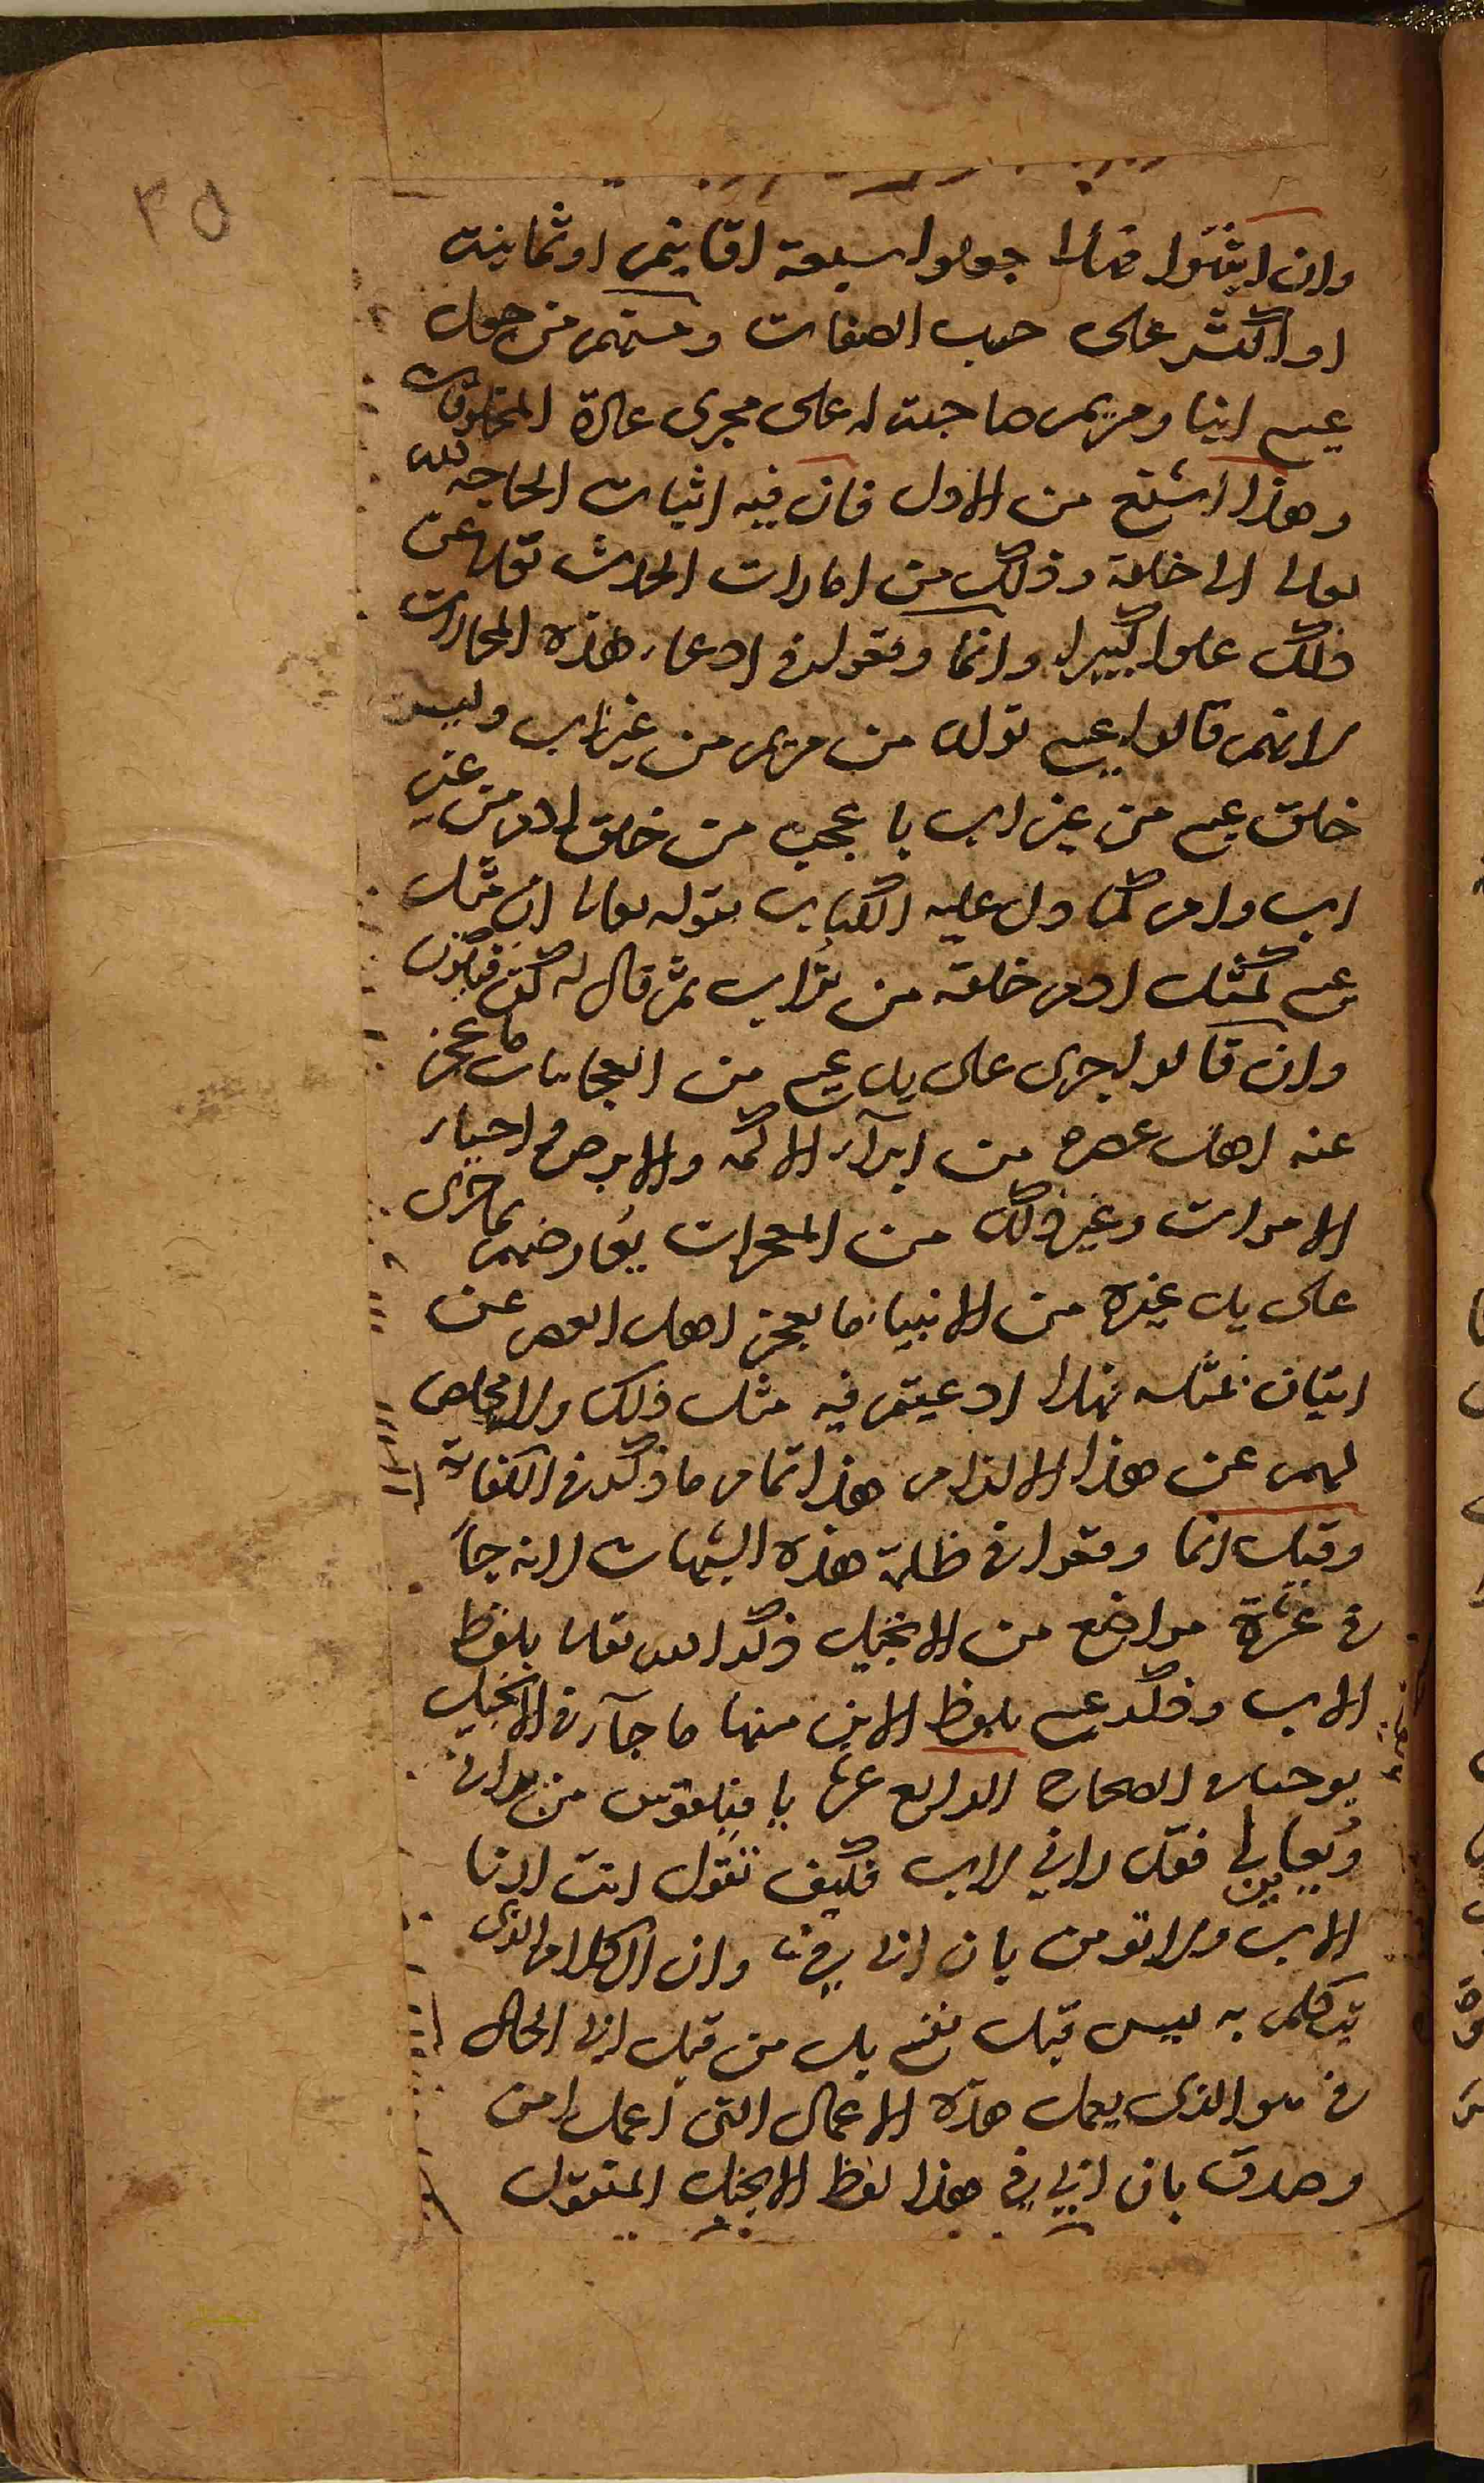 ٢٥
وان اثبتوا فهلا جعلوا سبعة اقانيم او ثمانية
او اكثر على حسب الصفات ومنهم من جعل
عيسى ابنا ومريم صاحبة له على مجرى عادة المخلوقات
وهذا اشنع من الاول فان فيه اثبات الحاجة لله
تعالى الى خلقه وذلك من امارات الحدث تعالى عن
ذلك علوا كبيرا وانما وقعوا في ادعاء هذه المحالات
لانهم قالوا عيسى تولد من مريم من غير اب وليس
خلق عيسى من غير اب باعجب من خلق ادم من غير
اب وام كما دل عليه الكتاب بقوله تعالى ان مثل
عيسى كمثل ادم خلقه من تراب ثم قال له كن فيكون
وان قالوا جرى على يد عيسى من العجائبات ما عجز
عنه اهل عصره من ابرآء الاكمه والابرص و احياء
الاموات وغير ذلك من المعجزات يعارضهم بما جرى
على يد غيره من الانبياء ما يعجز اهل العصر عن
اتيان بمثله فهلا ادعيتم فيه مثل ذلك ولا مخلص
لهم عن هذا الالزام هذا تمام ما ذكر في الكفاية
وقيل انما وقعوا في ظلمة هذه الشبهات لانه جآء
في عدة مواضع من الانجيل ذكر الله تعالى بلفظ
الاب وذكر عيسى بلفظ الابن منها ما جآء في الانجيل
يوحنا في الصحاح الرابع عشر يا فيلفوس من يراني
ويعاينني فقد راني الاب فكيف تقول انت ارنا
الاب ولا تؤمن بان ابي في وان الكلام الذي
يتكلم به ليس قبل نفسي بل من قبل ابي الحال
في هو الذي يعمل هذه الاعمال التي اعمل امن
وصدق بان ابي في هذا لفظ الانجيل المنقول